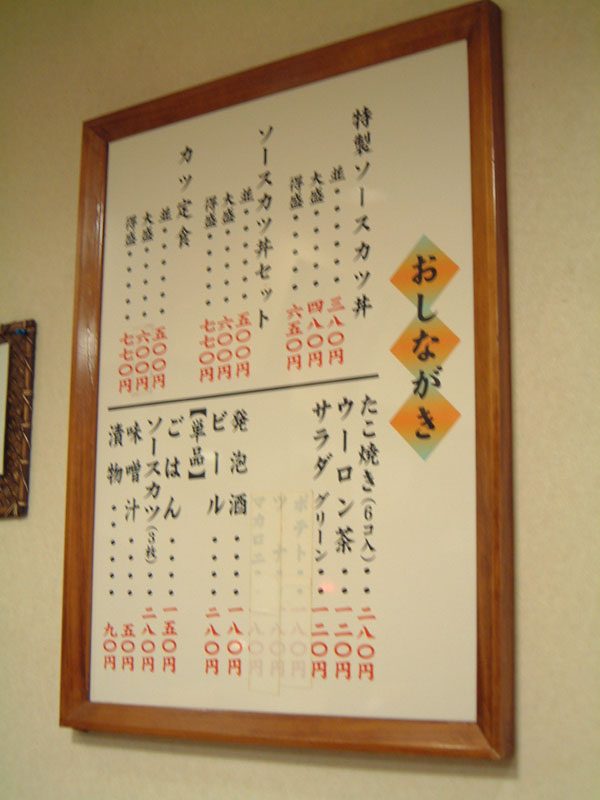 おしながき
特製ソースカツ丼
並・・・・・・三八〇円
大盛・・・・・四八〇円
得盛・・・・・六五〇円
ソースカツ丼セット
並・・・・・・五〇〇円
大盛・・・・・六〇〇円
得盛・・・・・七七〇円
カツ定食
並・・・・・・五〇〇円
大盛・・・・・六〇〇円
得盛・・・・・七七〇円
たこ焼き(6コ入)・・二八〇円
ウーロン茶・・一二〇円
サラダ グリーン・・一二〇円
ポテト・・一八〇円
ツナ・・一八〇円
マカロニ・・一八〇円
発泡酒・・・・一八〇円
ビール・・・・二八〇円
【単品】
ごはん・・・・一五〇円
ソースカツ(3枚)・・二八〇円
味噌汁・・・・・五〇円
漬物・・・・・・九〇円